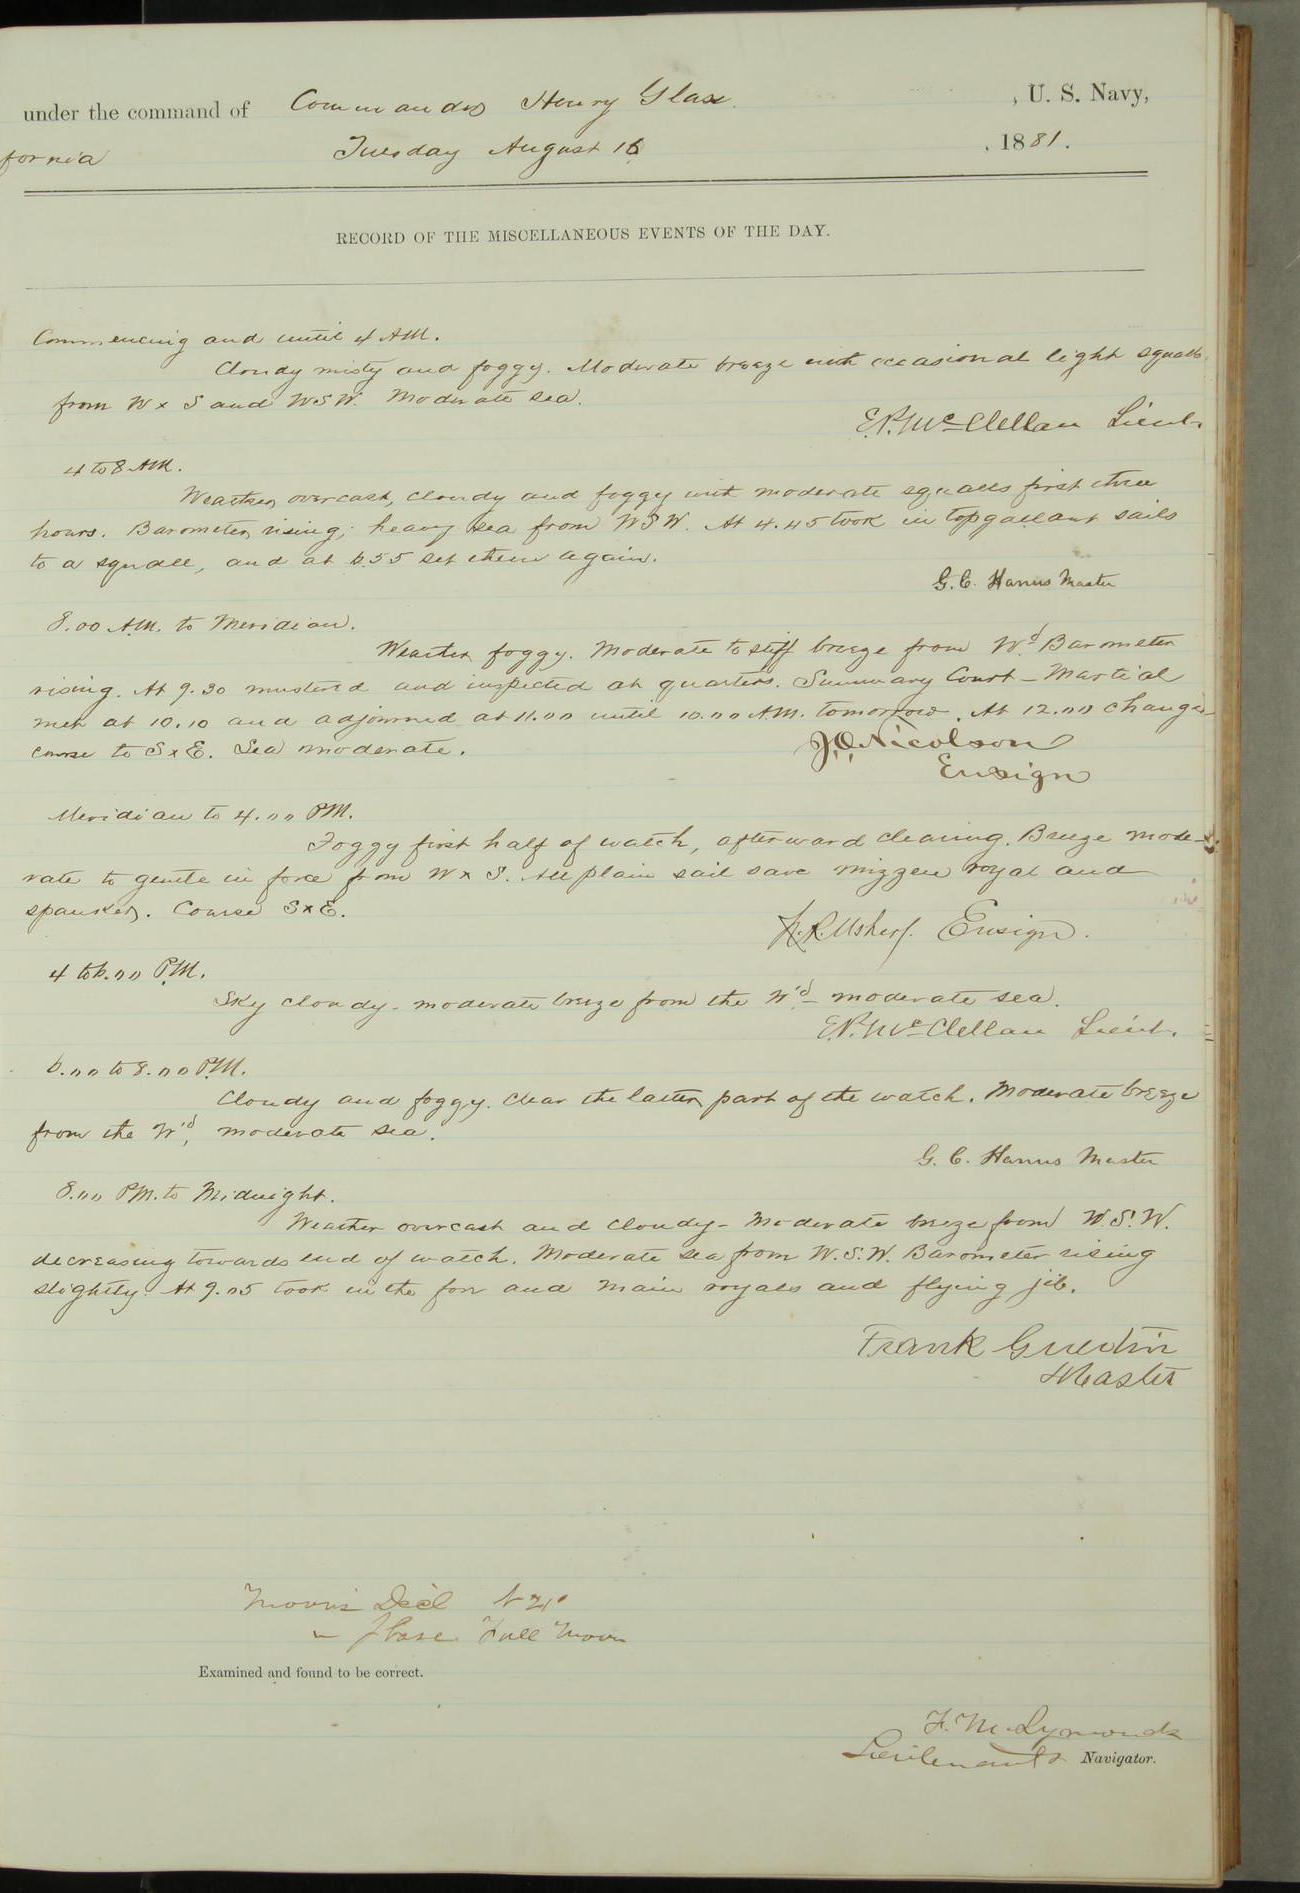 under the command of Commander Henry Glass, U. S. Navy,
fornia Tuesday August 16, 1881.
RECORD OF THE MISCELLANEOUS EVENTS OF THE DAY.
Commencing and until 4 AM.
Cloudy misty and foggy. Moderate breeze with occasional light squalls
from W x S and WSW. Moderate sea.
E.P. McClellan Lieut.
4 to 8 AM.
Weather overcast, cloudy and foggy with moderate squalls first three
hours. Barometer rising; heavy sea from WSW. At 4.45 took in topgallant sails
to a squall, and at 6.55 set them again.
G. C. Hanus Master
8.00 A.M. to Meridian.
Weather foggy. Moderate to stiff breeze from W'd. Barometer
rising. At 9.30 mustered and inspected at quarters. Summary Court-Martial
met at 10.10 and adjourned at 11.00 until 10.00 A.M. tomorrow. At 12.00 changed
course to S x E. Sea moderate.
J.O. Nicolson
Ensign
Meridian to 4.00 PM.
Foggy first half of watch, afterward clearing. Breeze mode-
rate to gentle in force from W x S. All plain sail save mizzen royal and
spanker. Course S x E.
N.R. Usher Ensign.
4 to 6.00 P.M.
Sky cloudy - moderate breeze from the W'd - moderate sea.
E.P. McClellan Lieut.
6.00 to 8.00 P.M.
Cloudy and foggy. Clear the latter part of the watch. Moderate breeze
from the W'd, moderate sea.
G. C. Hanus Master
8.00 PM. to Midnight.
Weather overcast and cloudy - Moderate breeze from W.S.W.
decreasing towards end of watch. Moderate sea from W.S.W. Barometer rising
slightly. At 9.05 took in the fore and main royals and flying jib.
Frank Guertin
Master
Moon's Decl N
" Phase Full Moon
Examined and found to be correct.
F. M. Symonds
Lieutenant & Navigator.